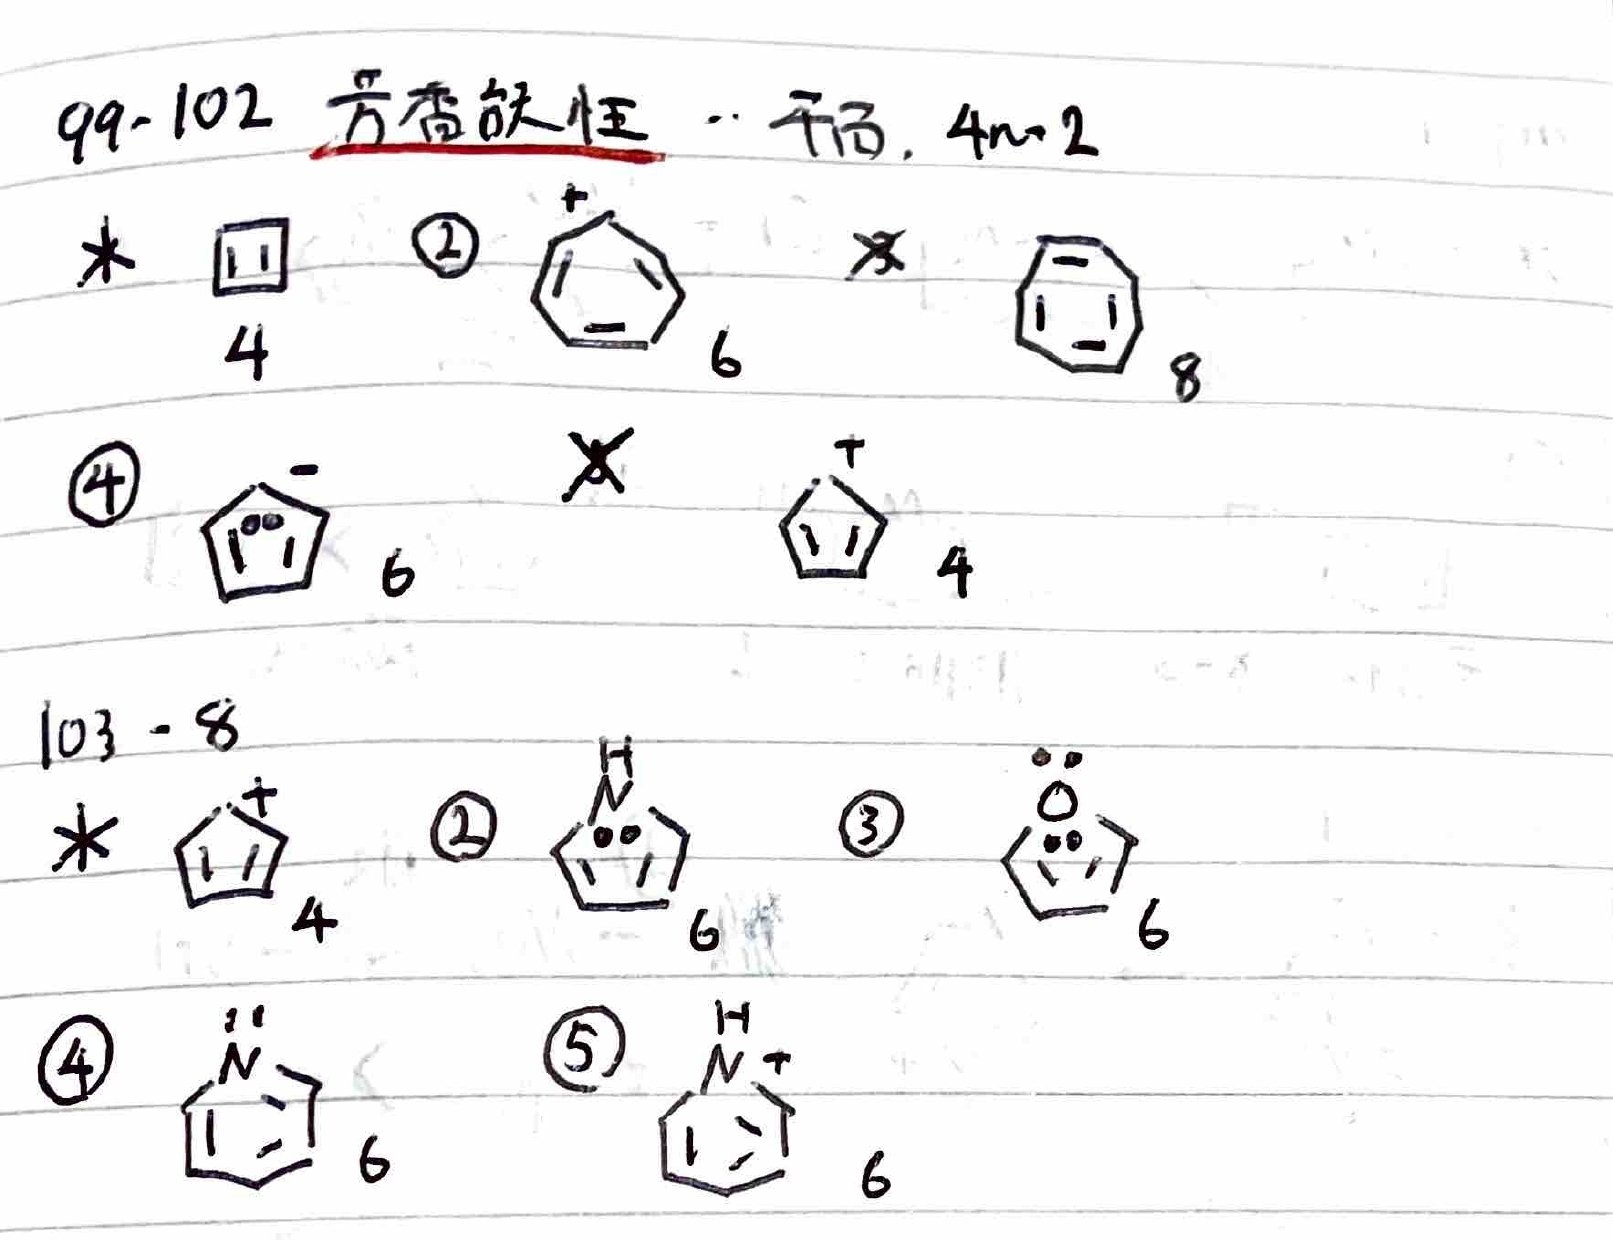 99-102 芳香族性 ‥ 平面. 4n+2
② +
4 6 8
④ - +
6 4
103-8
+ ② H N ③ O
4 6 6
④ N ⑤ H N +
6 6